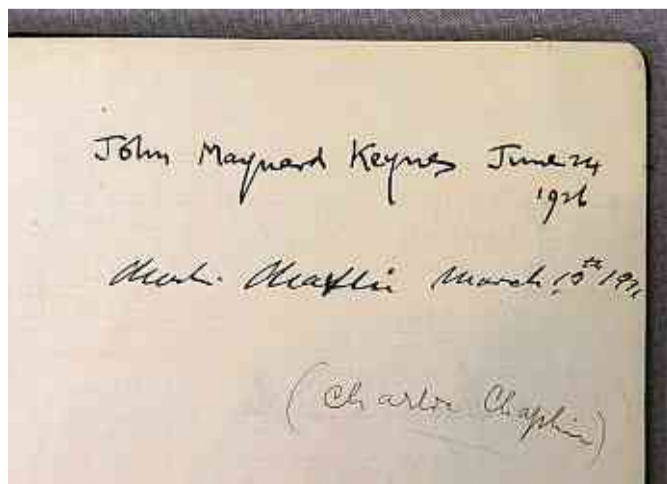 John Maynard Keynes June 24
1926
Charlie Chaplin March
(Charlie Chaplin)